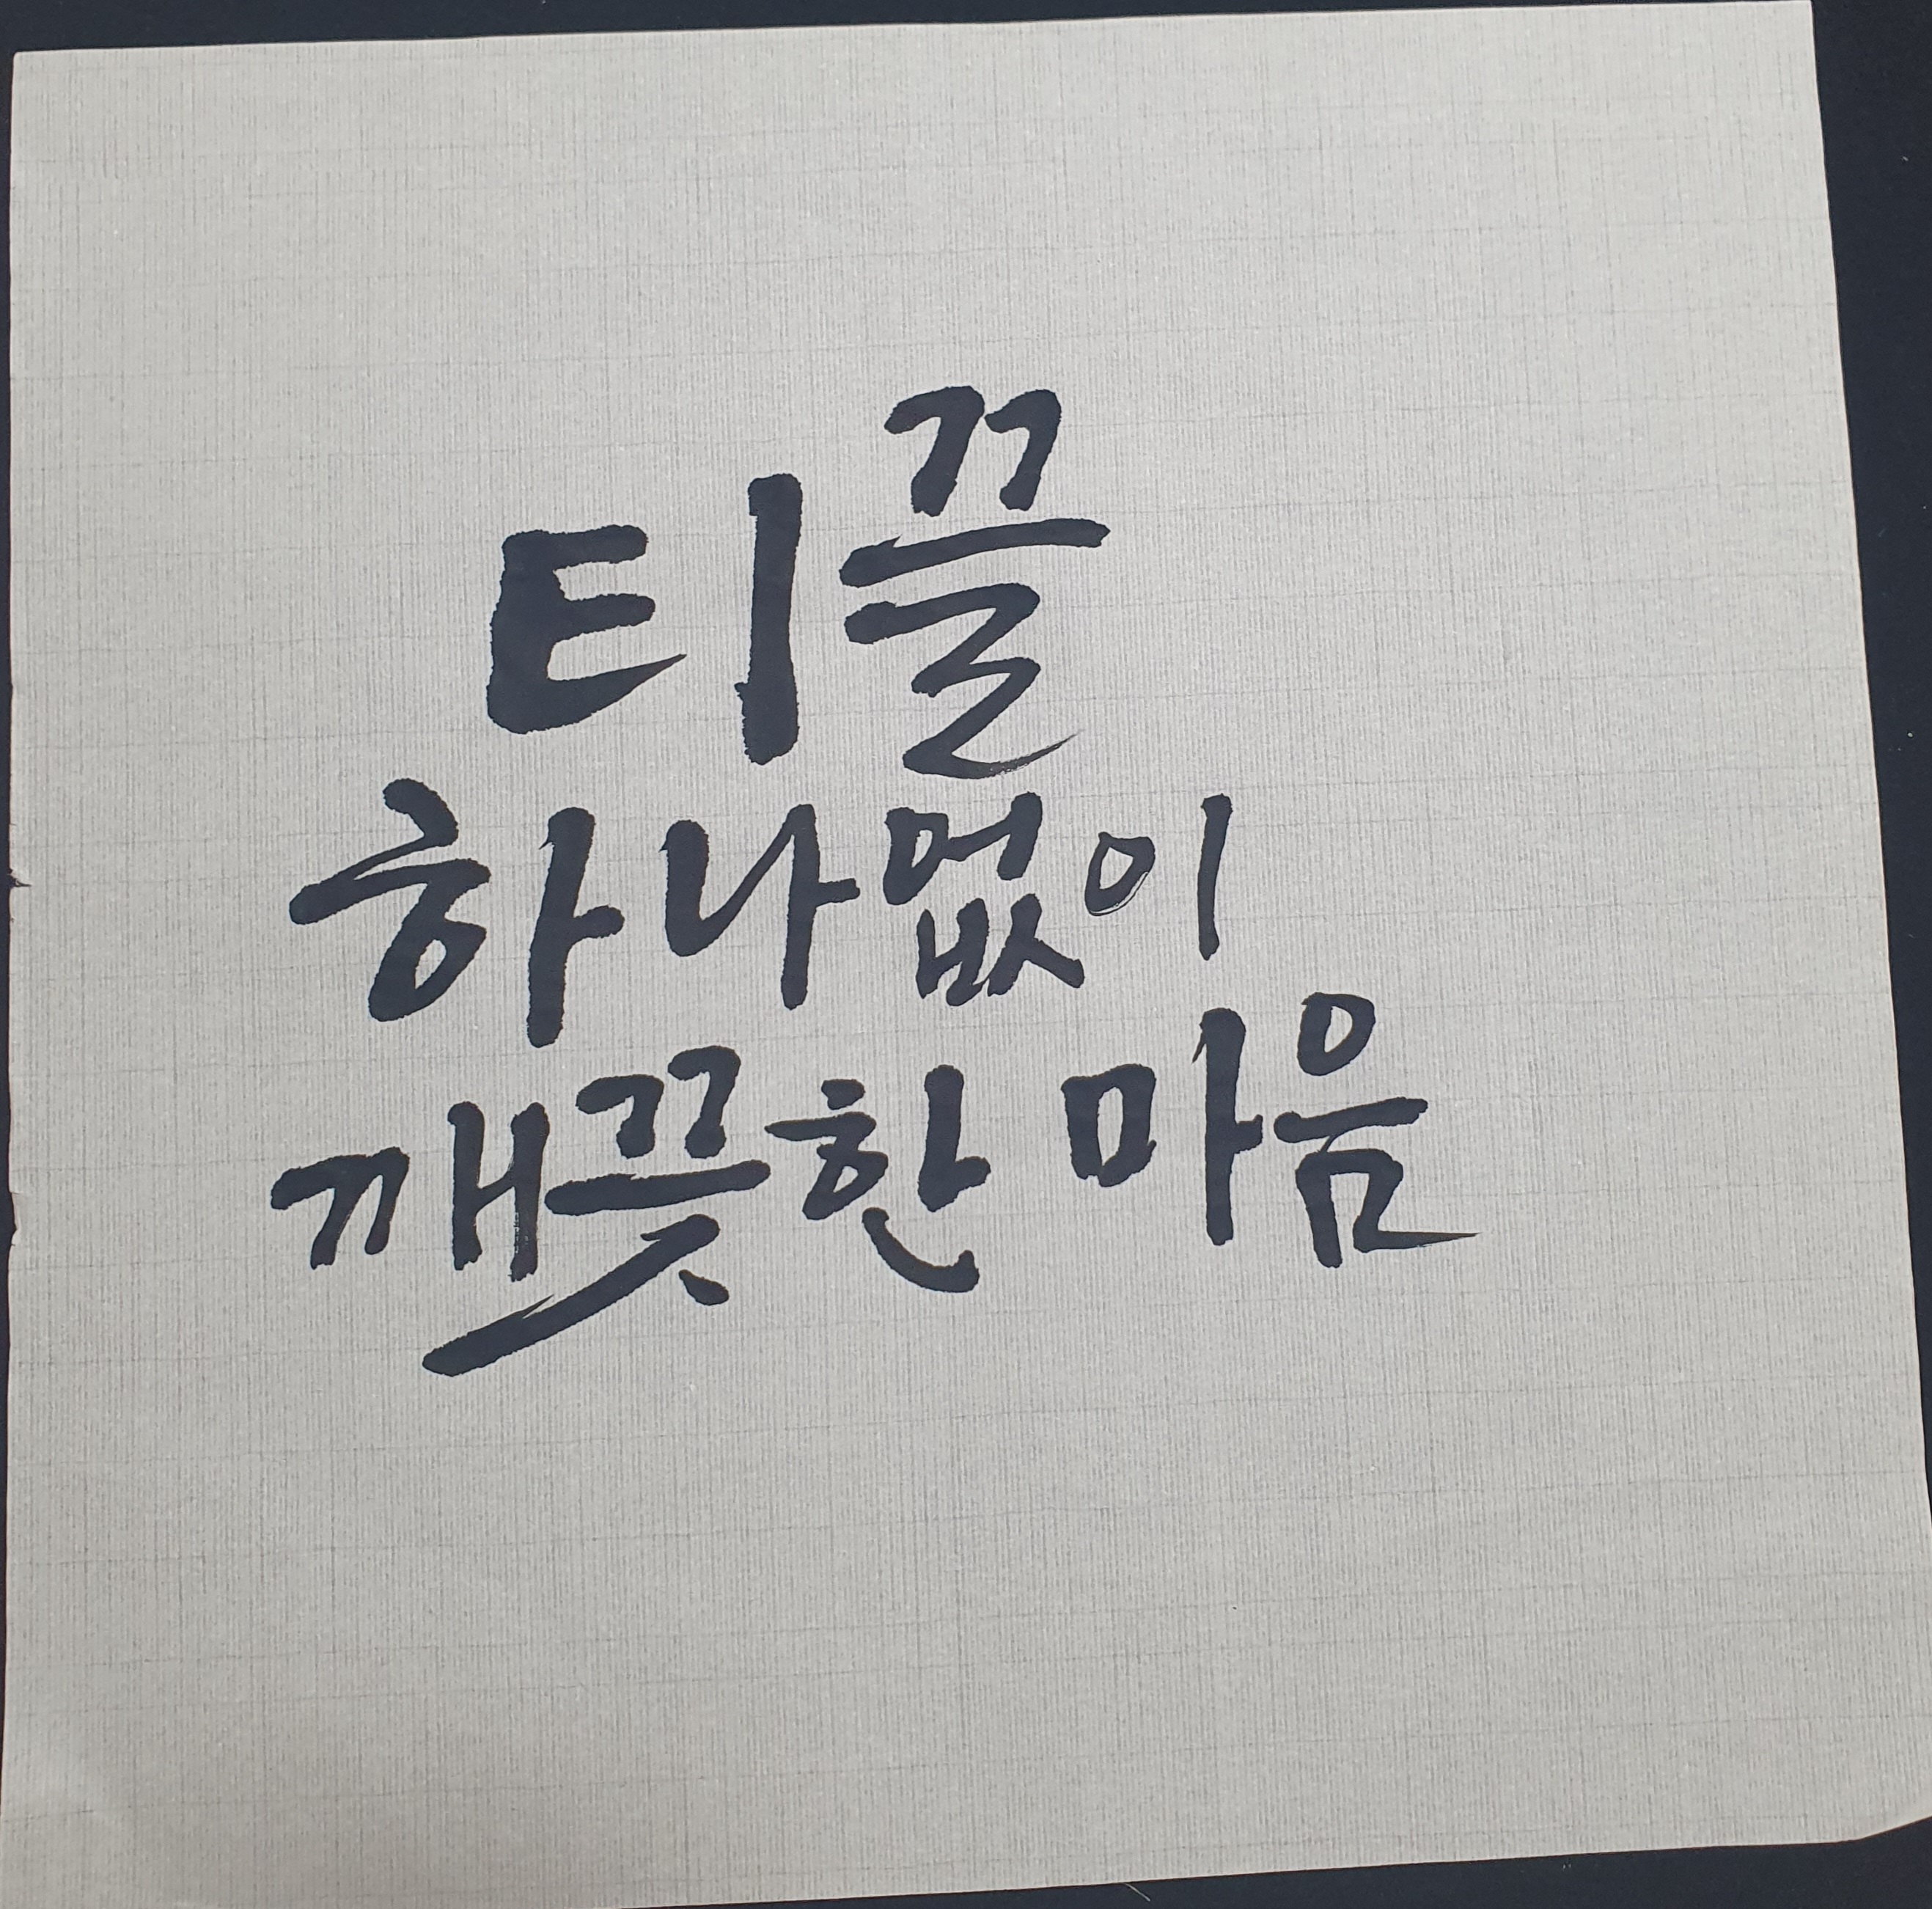 티끌
하나없이
깨끗한 마음